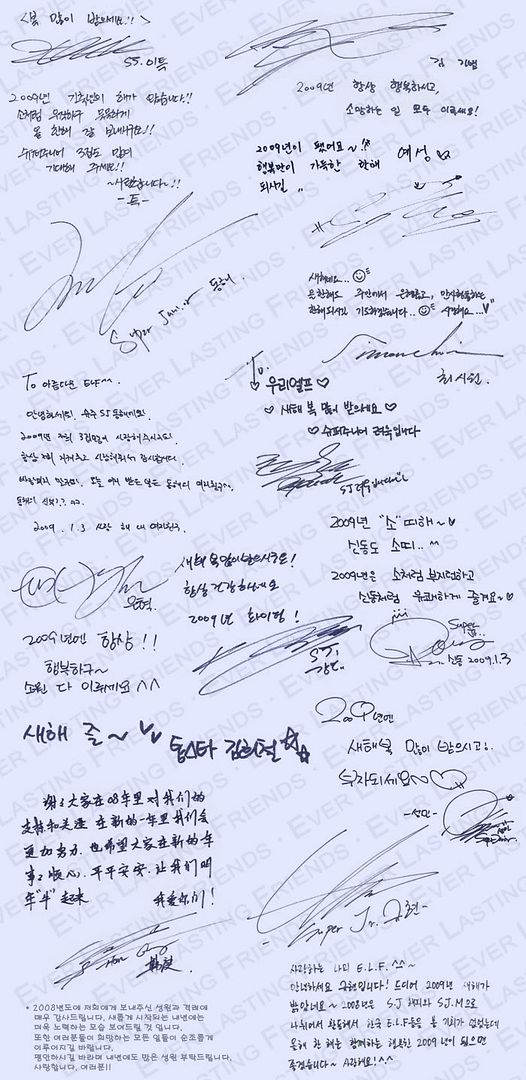 <복 많이 받으세요!!>
SJ.이특
2009년 기축년의 해가 밝았습니다!!
소처럼 우직하고 묵묵하게
올 한해 잘 보내구요!!
슈퍼주니어 3집도 많이
기대해 주세요!!
~사랑합니다~!!
-특-
김 기범
2009년 항상 행복하시고,
소망하는 일 모두 이루세요!
2009년이 됐어요~!!
행복만이 가득한 한해 예성
되시길
Super Junior 동해.
새해네요...
은혜롭고,
한해되시길 기도하겠습니다..
최시원.
To 아름다운 ELF^^.
안녕하세요! 슈주 SJ 동해에요!
2009년 저희 3집
항상 저희
2009. 1. 3
To.
♡ 우리엘프 ♡
♡ 새해 복 많이 받아요 ♡
♡ 슈퍼주니어 려욱입니다
SJ려욱
2009년 "소"띠해~♡
신동도 소띠..^^
2009년은 소처럼 부지런하고
신동처럼 유쾌하게 즐겨요~♡
Super
신동 2009.1.3
은혁.
2009년엔 항상!!
행복하구~
소원 다 이뤄져요 ^^
새해 복 많이 받으시구요!
항상 건강하세요
2009년 화이팅!
SJ.
강인
새해 즐~ 톱스타 김희철 ☆
2009년엔
새해복 많이 받으시고!.
부자되세요~♡
-성민-
谢谢大家在08年里对我们的
支持和关爱 在新的一年里我们会
更加努力. 也希望大家在新的年
事事顺心. 平平安安. 让我们叫
年"牛"起来 我爱你们!
韩庚.
Super Jr. 규현-
사랑하는 나의 E.L.F. ^^~
안녕하세요 규현입니다! 드디어 2009년 새해가
밝았네요~ 2008년은 S.J 해피와 S.J.M으로
나뉘어서 활동해서 한국 E.L.F들을 볼 기회가 없었는데
올해 한 해는 함께하는 행복한 2009년이 됐으면
좋겠습니다~ 사랑해요!^^
* 2008년도에 저희에게 보내주신 성원과 격려에
매우 감사드립니다. 새롭게 시작되는 내년에는
더욱 노력하는 모습 보여드릴 것 입니다.
또한 여러분들이 희망하는 모든 일들이 순조롭게
이루어지길 바랍니다.
평안하시길 바라며 내년에도 많은 성원 부탁드립니다.
사랑합니다, 여러분!!
EVER LASTING FRIENDS